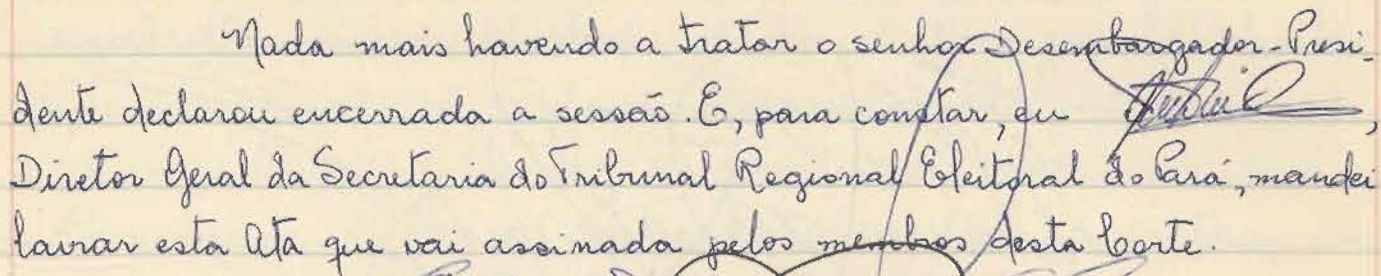 Nada mais havendo a tratar o senhor Desembargador-Presi-
dente declarou encerrada a sessão. E, para constar, eu ,
Diretor Geral da Secretaria do Tribunal Regional Eleitoral do Pará, mandei
lavrar esta Ata que vai assinada pelos membros desta Corte.